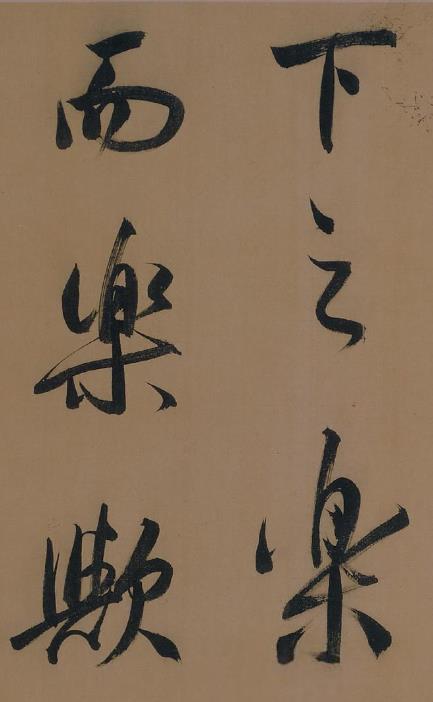 下之樂
而樂歟